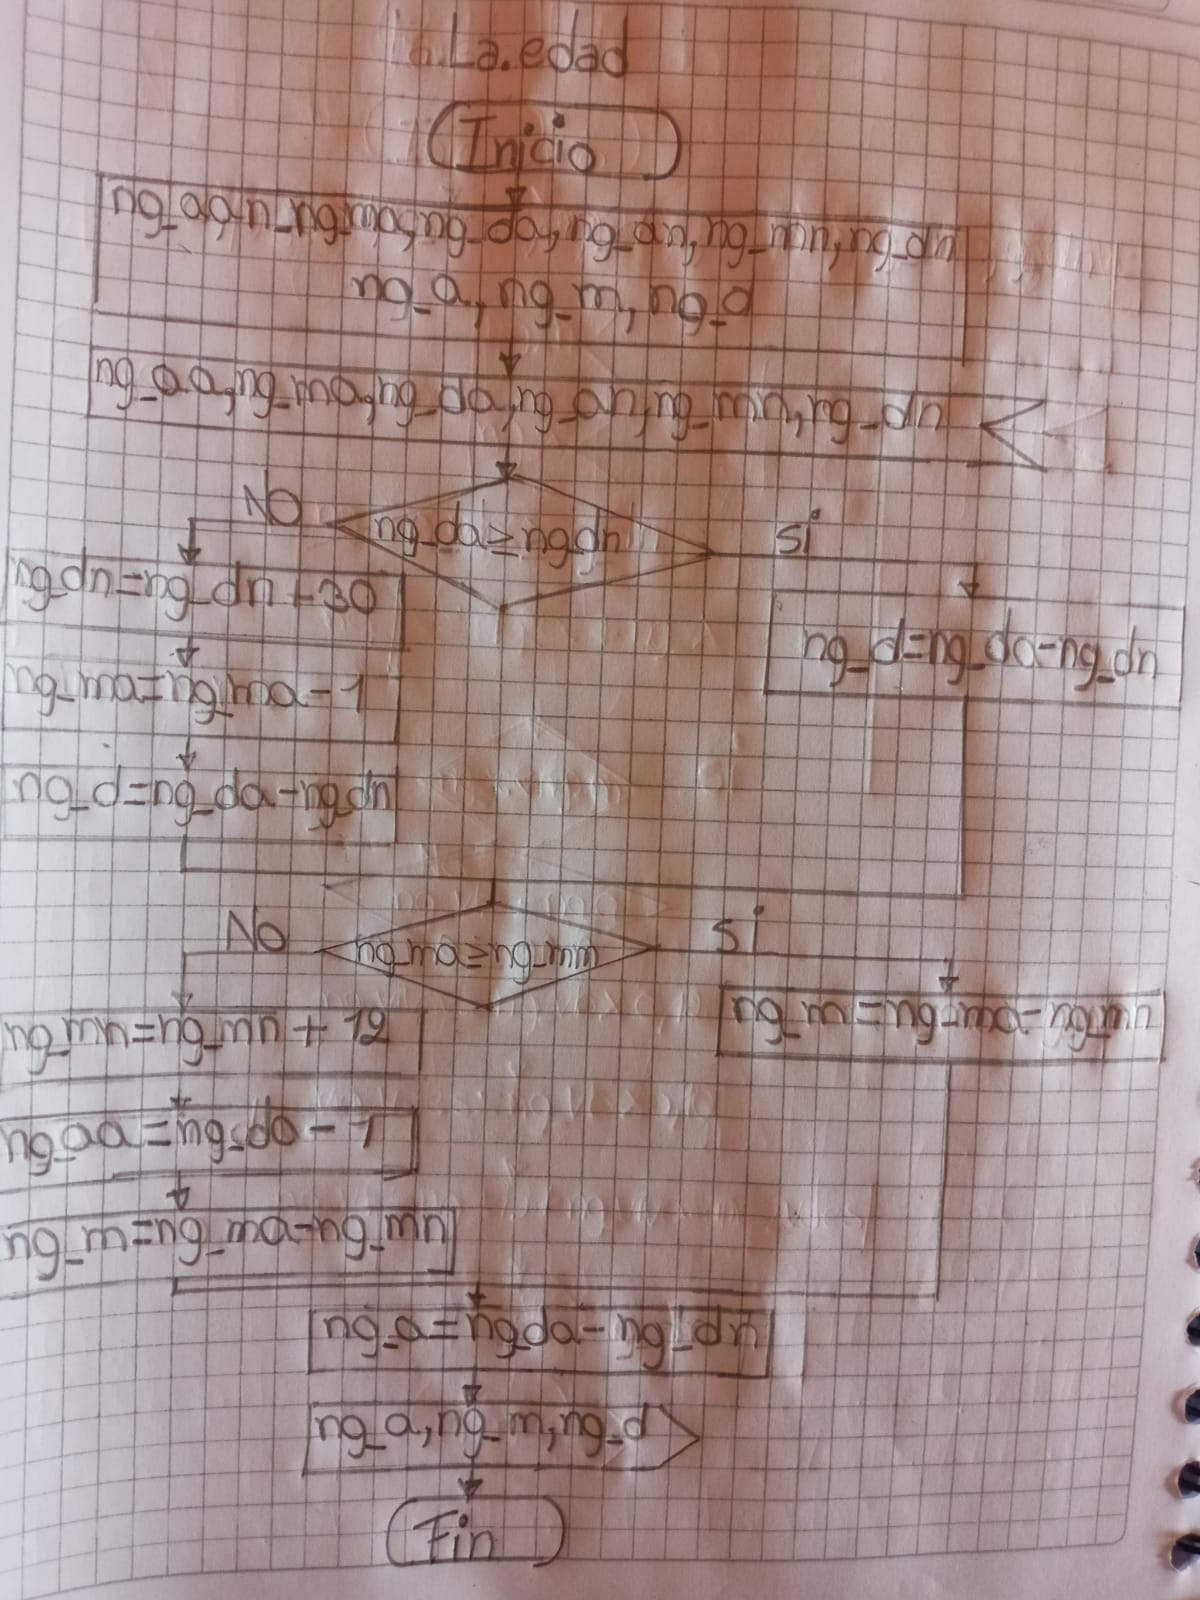 La.edad
Inicio
ng_aa,n_ng_ma,ng_da,ng_an,ng_mn,ng_dn
ng_a, ng_m, ng_d
ng_aa,ng_ma,ng_da,ng_an,ng_mn,ng_dn
NO
ng_da≥ng_dn
si
ng_dn=ng_dn+30
ng_d=ng_da-ng_dn
ng_ma=ng_ma-1
ng_d=ng_da-ng_dn
No
ng_ma≥ng_mm
si
ng_mn=ng_mn+12
ng_m=ng_ma-ng_mn
ng_aa=ng_da-1
ng_m=ng_ma-ng_mn
ng_a=ngda-ng_dn
ng_a,ng_m,ng_d
Fin